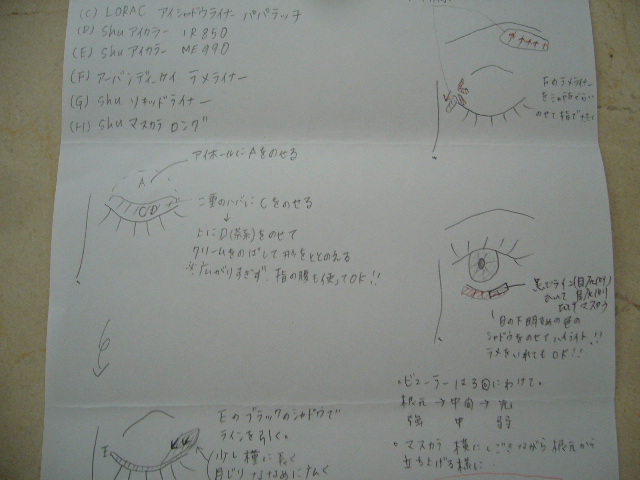 (C) LORAC アイシャドウライナー パパラッチ
(D) Shu アイカラー IR 850
(E) Shu アイカラー ME 990
(F) アーバンディケイ ラメライナー
(G) Shu リキッドライナー
(H) Shu マスカラ ロング
アイホールにAをのせる
A
二重のハバにCをのせる
CD
上にD(茶系)をのせて
クリームをのばしてカタチをととのえる
※広がりすぎず 指の腹も使ってOK!!
のせて指で
黒でライン(目尻側)
目尻側
だけマスカラ
目の下 明るめの色の
シャドウをのせてハイライト!!
ラメをいれてもOK!!
EのブラックのシャドウでE
ラインを引く。
少し横に長く
目じりななめに
E
。ビューラーは3回にわけて。
根元→中間→先
強 中 弱
。マスカラ 横にしごきながら根元から
立ち上げる様に